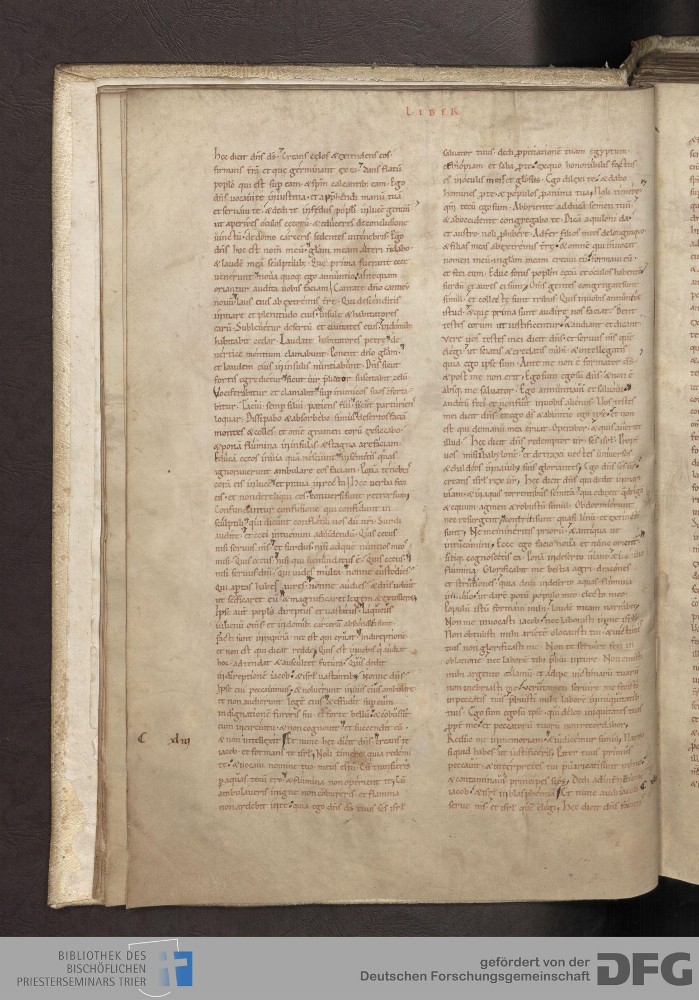 LIBER
hec dicit dns ds creans celos & extendens eos
firmans trā et que germinant ex ea dans flatū
poplo qui est sup eam & spm calcantib; eam Ego
dns uocaui te in iusticia et apphendi manū tuā
et seruaui te & dedi te in fedus popli in lucē gentiū
ut aperires oculos cecorū & educeres de conclusione
uinctū de domo carceris sedentes in tenebris Ego
dns hoc est nomen meū glam meam alteri n dabo
& laudē meā sculptilib; Que prima fuerunt ecce
uenerunt noua quoq; ego annuntio antequam
oriantur audita uobis faciam Cantate dno canticū
nouū laus eius ab extremis tre Qui descenditis
in mare et plenitudo eius insule & habitatores
earū Subleuetur desertū et ciuitates eius in domib;
habitabit cedar Laudate habitatores petre de
uertice montium clamabunt Ponent dno glam
et laudem eius in insulis nuntiabunt Dns sicut
fortis egredietur sicut uir pliator suscitabit zelū
Vociferabitur et clamabit sup inimicos suos
bitur Tacui semp silui patiens fui sicut parturiens
loquar Dissipabo & absorbebo simul Desertos faciā
montes & colles et omē gramen eorū exsiccabo
& ponā flumina in insulas & stagna arefaciam
Educā cecos in uia quā nesciunt in semitis quas
ignorauerunt ambulare eos faciam Ponā tenebras
corā eis in lucē et praua in recta Hec uerba feci
eis et non dereliqui eos conuersi sunt retrorsum
Confundantur confusione qui confidunt in
sculptili qui dicunt conflatili uos dii nri Surdi
audite et ceci intuemini ad uidendū Quis cecus
nisi seruus ms et surdus nisi ad que nuntios meos
misi Quis cecus nisi qui uenundatus ē Quis cecus
nisi seruus dni Qui uides multa nonne custodies
Qui aptas habes aures nonne audies & dns uoluit
ut scificaret eū & magnificaret legem & extolleret
Ipse aut popls direptus et uastatus Laqueus
iuuenū oms et in domib; carcerū absconditi sunt
facti sunt in rapinā nec est qui eruat In direptionē
et non est qui dicat redde Quis est in uobis q audiat
hoc adtendat & auscultet futura Quis dedit
in direptionē iacob & isrl uastantib; Nonne dns
Ipse cui peccauimus & noluerunt in uiis eius ambulare
et non audierunt legē eius & effudit sup eum
indignationē furoris sui et forte bellū & cobussit
eum in circuitu & non cognouit et succendit eū
& non intellexit Et nunc hec dicit dns creans te
C xliii
iacob et formans te isrl Noli timere quia redemi
te & uocaui nomine tuo meus es tu Cū transieris
p aquas tecū ero & flumina non operient te Cū
ambulaueris in igne non conbureris et flamma
non ardebit in te quia ego dns ds tuus scs isrl
saluator tuus dedi ppitiationē tuam egyptum
Ethiopiam et saba p te Ex quo honorabilis factus es
in oculis meis et gliosus Ego dilexi te & dabo
homines p te & populos p anima tua Noli timere
qm tecū ego sum Ab oriente adducā semen tuū
& ab occidente congregabo te Dicā aquiloni da
et austro noli phibere Adfer filios meos de longinquo
& filias meas ab extremis tre & omnē qui inuocat
nomen meū in glam meam creaui eū formaui eū
et feci eum Educ foras poplm cecū et oculos habentē
surdū et aures ei sunt Oms gentes congregate sunt
simul et collecte sunt tribus Quis in uobis annuntiet
istud & que prima sunt audire nos faciat Dent
testes eorum ut iustificentur & audiant et dicant
Vere uos testes mei dicit dns et seruus ms quē
elegi ut sciatis & credatis mihi & intellegatis
quia ego ipse sum Ante me non ē formatus ds
& post me non erit Ego sum ego sū dns & non ē
absq; me saluator Ego annuntiaui et saluaui
auditū feci et non fuit in uobis alienus Vos testes
mei dicit dns et ego ds & ab initio ego ipse et non
est qui de manu mea eruat Operabor & quis auertet
illud Hec dicit dns redemptor ur scs isrl Propt
uos misi babylonē et detraxi uectes uniuersos
& chaldeos in nauib; suis gloriantes Ego dns scs ur
creans isrl rex ur Hec dicit dns qui dedit in mari
uiam & in aquis torrentibus semitā qui eduxit quadrigā
& equum agmen & robustū simul Obdormierunt
nec resurgent contriti sunt quasi linū et extincti
sunt Ne memineritis priorū & antiqua ne
intueamini Ecce ego facio noua et nunc orient
utiq; cognoscetis ea Ponā in deserto uiam & in inuio
flumina Glorificabit me bestia agri dracones
et strutiones quia dedi in deserto aquas flumina
in inuio ut darē potū populo meo electo meo
Populū istū formaui mihi laudē meam narrabit
Non me inuocasti iacob nec laborasti in me isrl
Non obtulisti mihi arietē olocausti tui & uictimis
tuis non glorificasti me Non te seruire feci in
oblatione nec laborē tibi pbui in ture Non emisti
mihi argento calamū et adipe uictimarū tuarū
non inebriasti me Verutamen seruire me fecisti
in peccatis tuis pbuisti mihi laborē in iniquitatib;
tuis Ego sum ego sū ipse qui deleo iniquitates tuas
ppt me et peccatorū tuorū non recordabor
Reduc me in memoriam & iudicemur simul Narra
siquid habes ut iustificeris Pater tuus primus
peccauit & interpretes tui puaricati sunt in me
& contaminaui principes scos Dedi ad internicionē
iacob & isrl in blasphemiā Et nunc audi iacob
serue ms et isrl quē elegi Hec dicit dns faciens
BIBLIOTHEK DES
BISCHÖFLICHEN
PRIESTERSEMINARS TRIER
gefördert von der
Deutschen Forschungsgemeinschaft
DFG